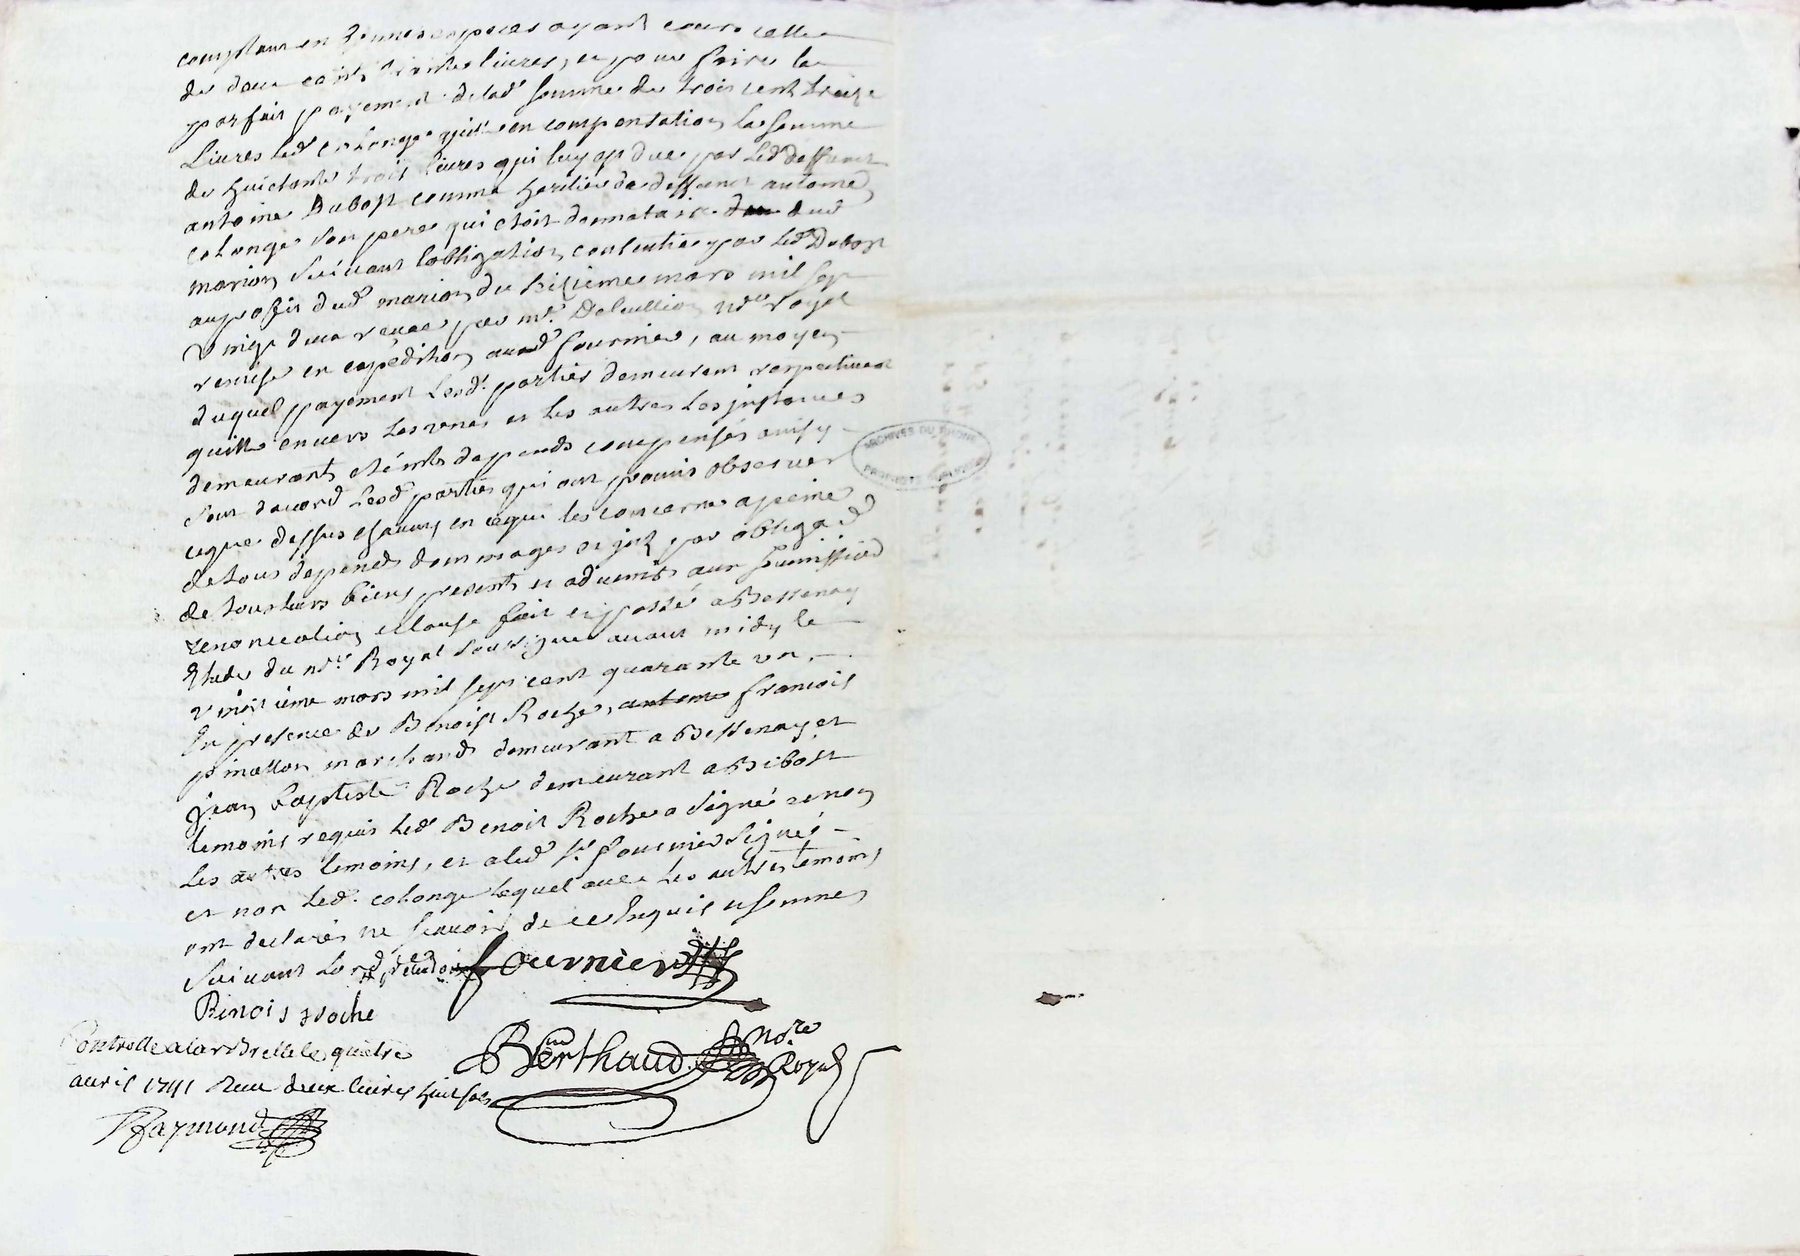 comptant en bonnes especes ayant cours celle
de deux cents trente livres, et pour faire le
parfait payement de lad. somme de trois cent treize
Livres led. colonge quitte en compensation la somme
de huictante trois livres qui luy est due par led. deffunct
antoine Dubost comme heritier de deffunct antoine
colonge son pere qui etoit donnataire dud.
marion suivant lobligation consentie par led. Dubost
au profit dud. marion du sixieme mars mil sept
vingt deux recue par me. nore. royal
remise en expedition aud. fournier, au moyen
duquel payement lesd. parties demeurent respectivemt
quitte envers les unes et les autres les instances
demeurants eteints depends compensés ainsy
sont daccord lesd. parties qui ont promis observer
ceque dessus chacun en ceque les concerne apeine
de tous depends dommages et int. par obliga.
de tous leurs biens presents et advenir aux soumissions
renonciation clause fait et passé a Bessenay
Etude du nore. Royal soussigne avant midy le
vingtieme mars mil sept cent quarante un,
En presence de Benoist Roche, francois
pinatton marchands demeurant a Bessenay et
jean baptiste Roche demeurant a Bibost
temoins requis led. Benoit Roche a signé et non
les autres temoins, et a led. sr. fournier signé
et non led. colonge lequel avec les autres temoins
ont declarés ne scavoir de ce enquis et sommes
suivant lord.
fournier
Benoist roche
Berthaud nore. Royal
Controllé a larbrelle le quatre
avril 1741 Recu deux livres huit sols
Raymond
ARCHIVES DU RHONE